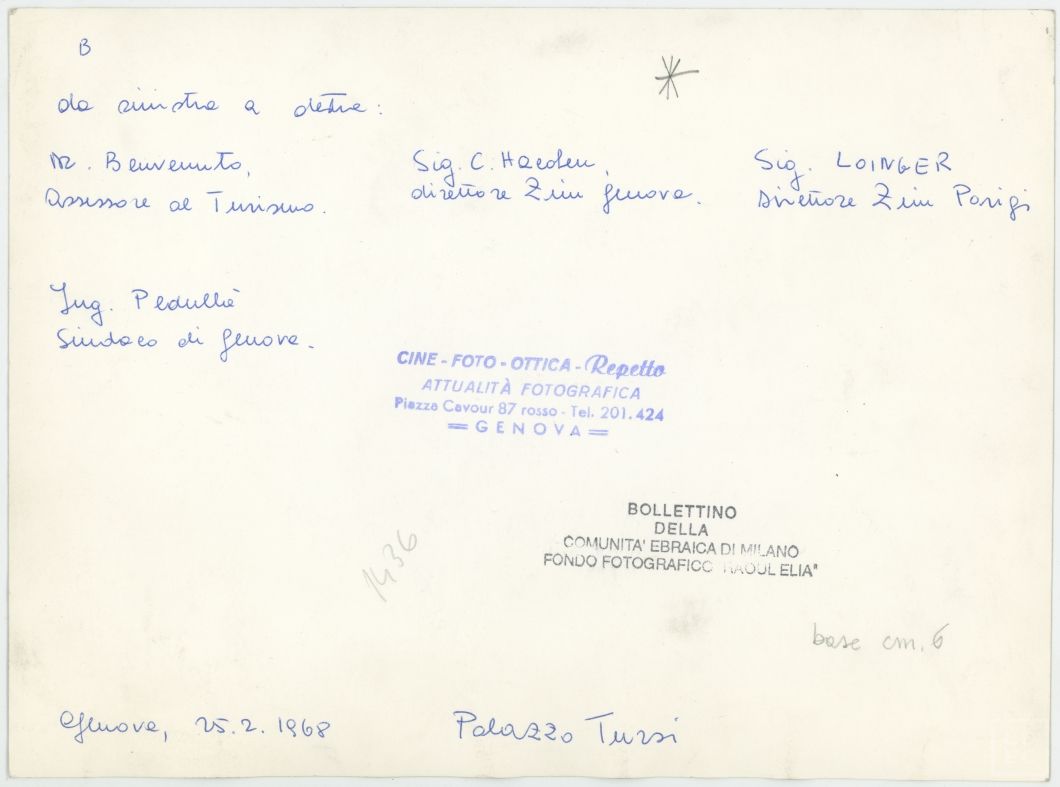 B
da sinistra a destra:
Benvenuto,
Assessore al Turismo.
Sig. C. Haeden,
direttore Zim Genova.
Sig. LOINGER
Direttore Zim Parigi
Ing. Pedullà
Sindaco di Genova.
CINE - FOTO - OTTICA - Repetto
ATTUALITÀ FOTOGRAFICA
Piazza Cavour 87 rosso - Tel. 201.424
= GENOVA =
BOLLETTINO
DELLA
COMUNITA' EBRAICA DI MILANO
FONDO FOTOGRAFICO "RAOUL ELIA"
1436
base cm. 6
Genova, 25.2.1968
Palazzo Tursi